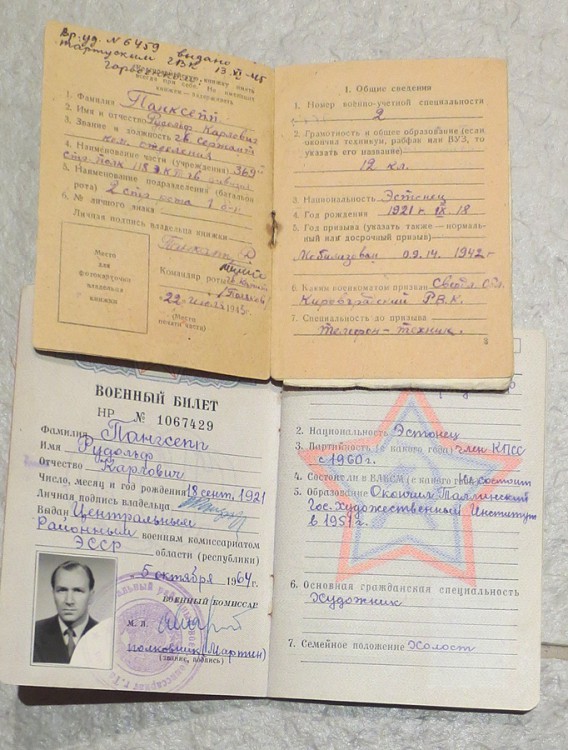 Вр. уд. N 6459 выдано
Тартуским ГВК 13.XI-45
книжку иметь
всегда при себе. Не имеющих
книжек — задерживать.
1. Фамилия Панксепп
2. Имя и отчество Рудольф Карлович
3. Звание и должность гв. сержант
ком. отделения
4. Наименование части (учреждения) 369
5. Наименование подразделения (батальон
рота)
6. № личного знака
Личная подпись владельца книжки
Место
для
фотокарточки
владельца
книжки
Командир роты
22 июля 1945 г.
(Место
печати части)
I. Общие сведения
1. Номер военно-учетной специальности
2
2. Грамотность и общее образование (если
окончил техникум, рабфак или ВУЗ, то
указать его название)
12 кл.
3. Национальность Эстонец
4. Год рождения 1921 г. IX. 18
5. Год призыва (указать также — нормаль-
ный или досрочный призыв)
Мобилизован 09.14. 1942 г.
6. Каким военкоматом призван Свердл. Обл.
РВК.
7. Специальность до призыва
телефон-техник.
8
ВОЕННЫЙ БИЛЕТ
НР № 1067429
Фамилия Пангсепп
Имя Рудольф
Отчество Карлович
Число, месяц и год рождения 18 сент. 1921
Личная подпись владельца
Выдан Центральным
Районным военным комиссариатом
ЭССР области (республики)
5 октября 1964 г.
ВОЕННЫЙ КОМИССАР
М. П.
полковник (Мартин)
(звание, подпись)
2. Национальность Эстонец
3. Партийность (с какого года) член КПСС
с 1960 г.
4. Состоял ли в ВЛКСМ (с какого года) не состоит
5. Образование Окончил Таллинский
Гос. Художественный Институт
в 1957 г.
6. Основная гражданская специальность
Художник
7. Семейное положение Холост